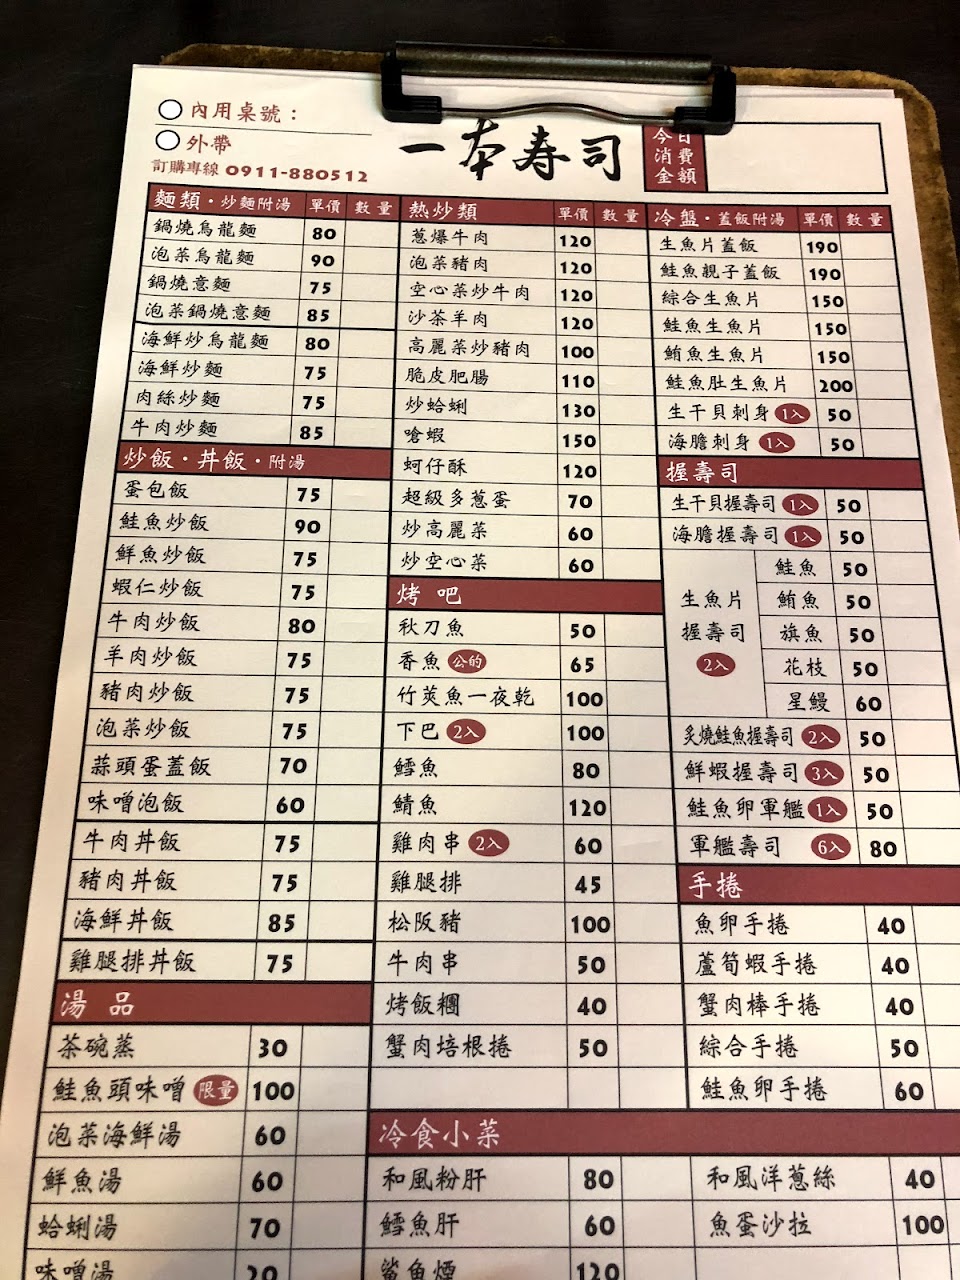 內用桌號：
外帶
訂購專線 0911-880512
一本寿司
今日
消費
金額
麵類·炒麵附湯 單價 數量
鍋燒烏龍麵 80
泡菜烏龍麵 90
鍋燒意麵 75
泡菜鍋燒意麵 85
海鮮炒烏龍麵 80
海鮮炒麵 75
肉絲炒麵 75
牛肉炒麵 85
炒飯·丼飯·附湯
蛋包飯 75
鮭魚炒飯 90
鮮魚炒飯 75
蝦仁炒飯 75
牛肉炒飯 80
羊肉炒飯 75
豬肉炒飯 75
泡菜炒飯 75
蒜頭蛋蓋飯 70
味噌泡飯 60
牛肉丼飯 75
豬肉丼飯 75
海鮮丼飯 85
雞腿排丼飯 75
湯品
茶碗蒸 30
鮭魚頭味噌 限量 100
泡菜海鮮湯 60
鮮魚湯 60
蛤蜊湯 70
味噌湯 20
熱炒類 單價 數量
蔥爆牛肉 120
泡菜豬肉 120
空心菜炒牛肉 120
沙茶羊肉 120
高麗菜炒豬肉 100
脆皮肥腸 110
炒蛤蜊 130
嗆蝦 150
蚵仔酥 120
超級多蔥蛋 70
炒高麗菜 60
炒空心菜 60
烤吧
秋刀魚 50
香魚 公的 65
竹莢魚一夜乾 100
下巴 2入 100
鱈魚 80
鯖魚 120
雞肉串 2入 60
雞腿排 45
松阪豬 100
牛肉串 50
烤飯糰 40
蟹肉培根捲 50
冷盤·蓋飯附湯 單價 數量
生魚片蓋飯 190
鮭魚親子蓋飯 190
綜合生魚片 150
鮭魚生魚片 150
鮪魚生魚片 150
鮭魚肚生魚片 200
生干貝刺身 1入 50
海膽刺身 1入 50
握壽司
生干貝握壽司 1入 50
海膽握壽司 1入 50
生魚片
握壽司
2入
鮭魚 50
鮪魚 50
旗魚 50
花枝 50
星鰻 60
炙燒鮭魚握壽司 2入 50
鮮蝦握壽司 3入 50
鮭魚卵軍艦 1入 50
軍艦壽司 6入 80
手捲
魚卵手捲 40
蘆筍蝦手捲 40
蟹肉棒手捲 40
綜合手捲 50
鮭魚卵手捲 60
冷食小菜
和風粉肝 80
鱈魚肝 60
鯊魚煙 120
和風洋蔥絲 40
魚蛋沙拉 100